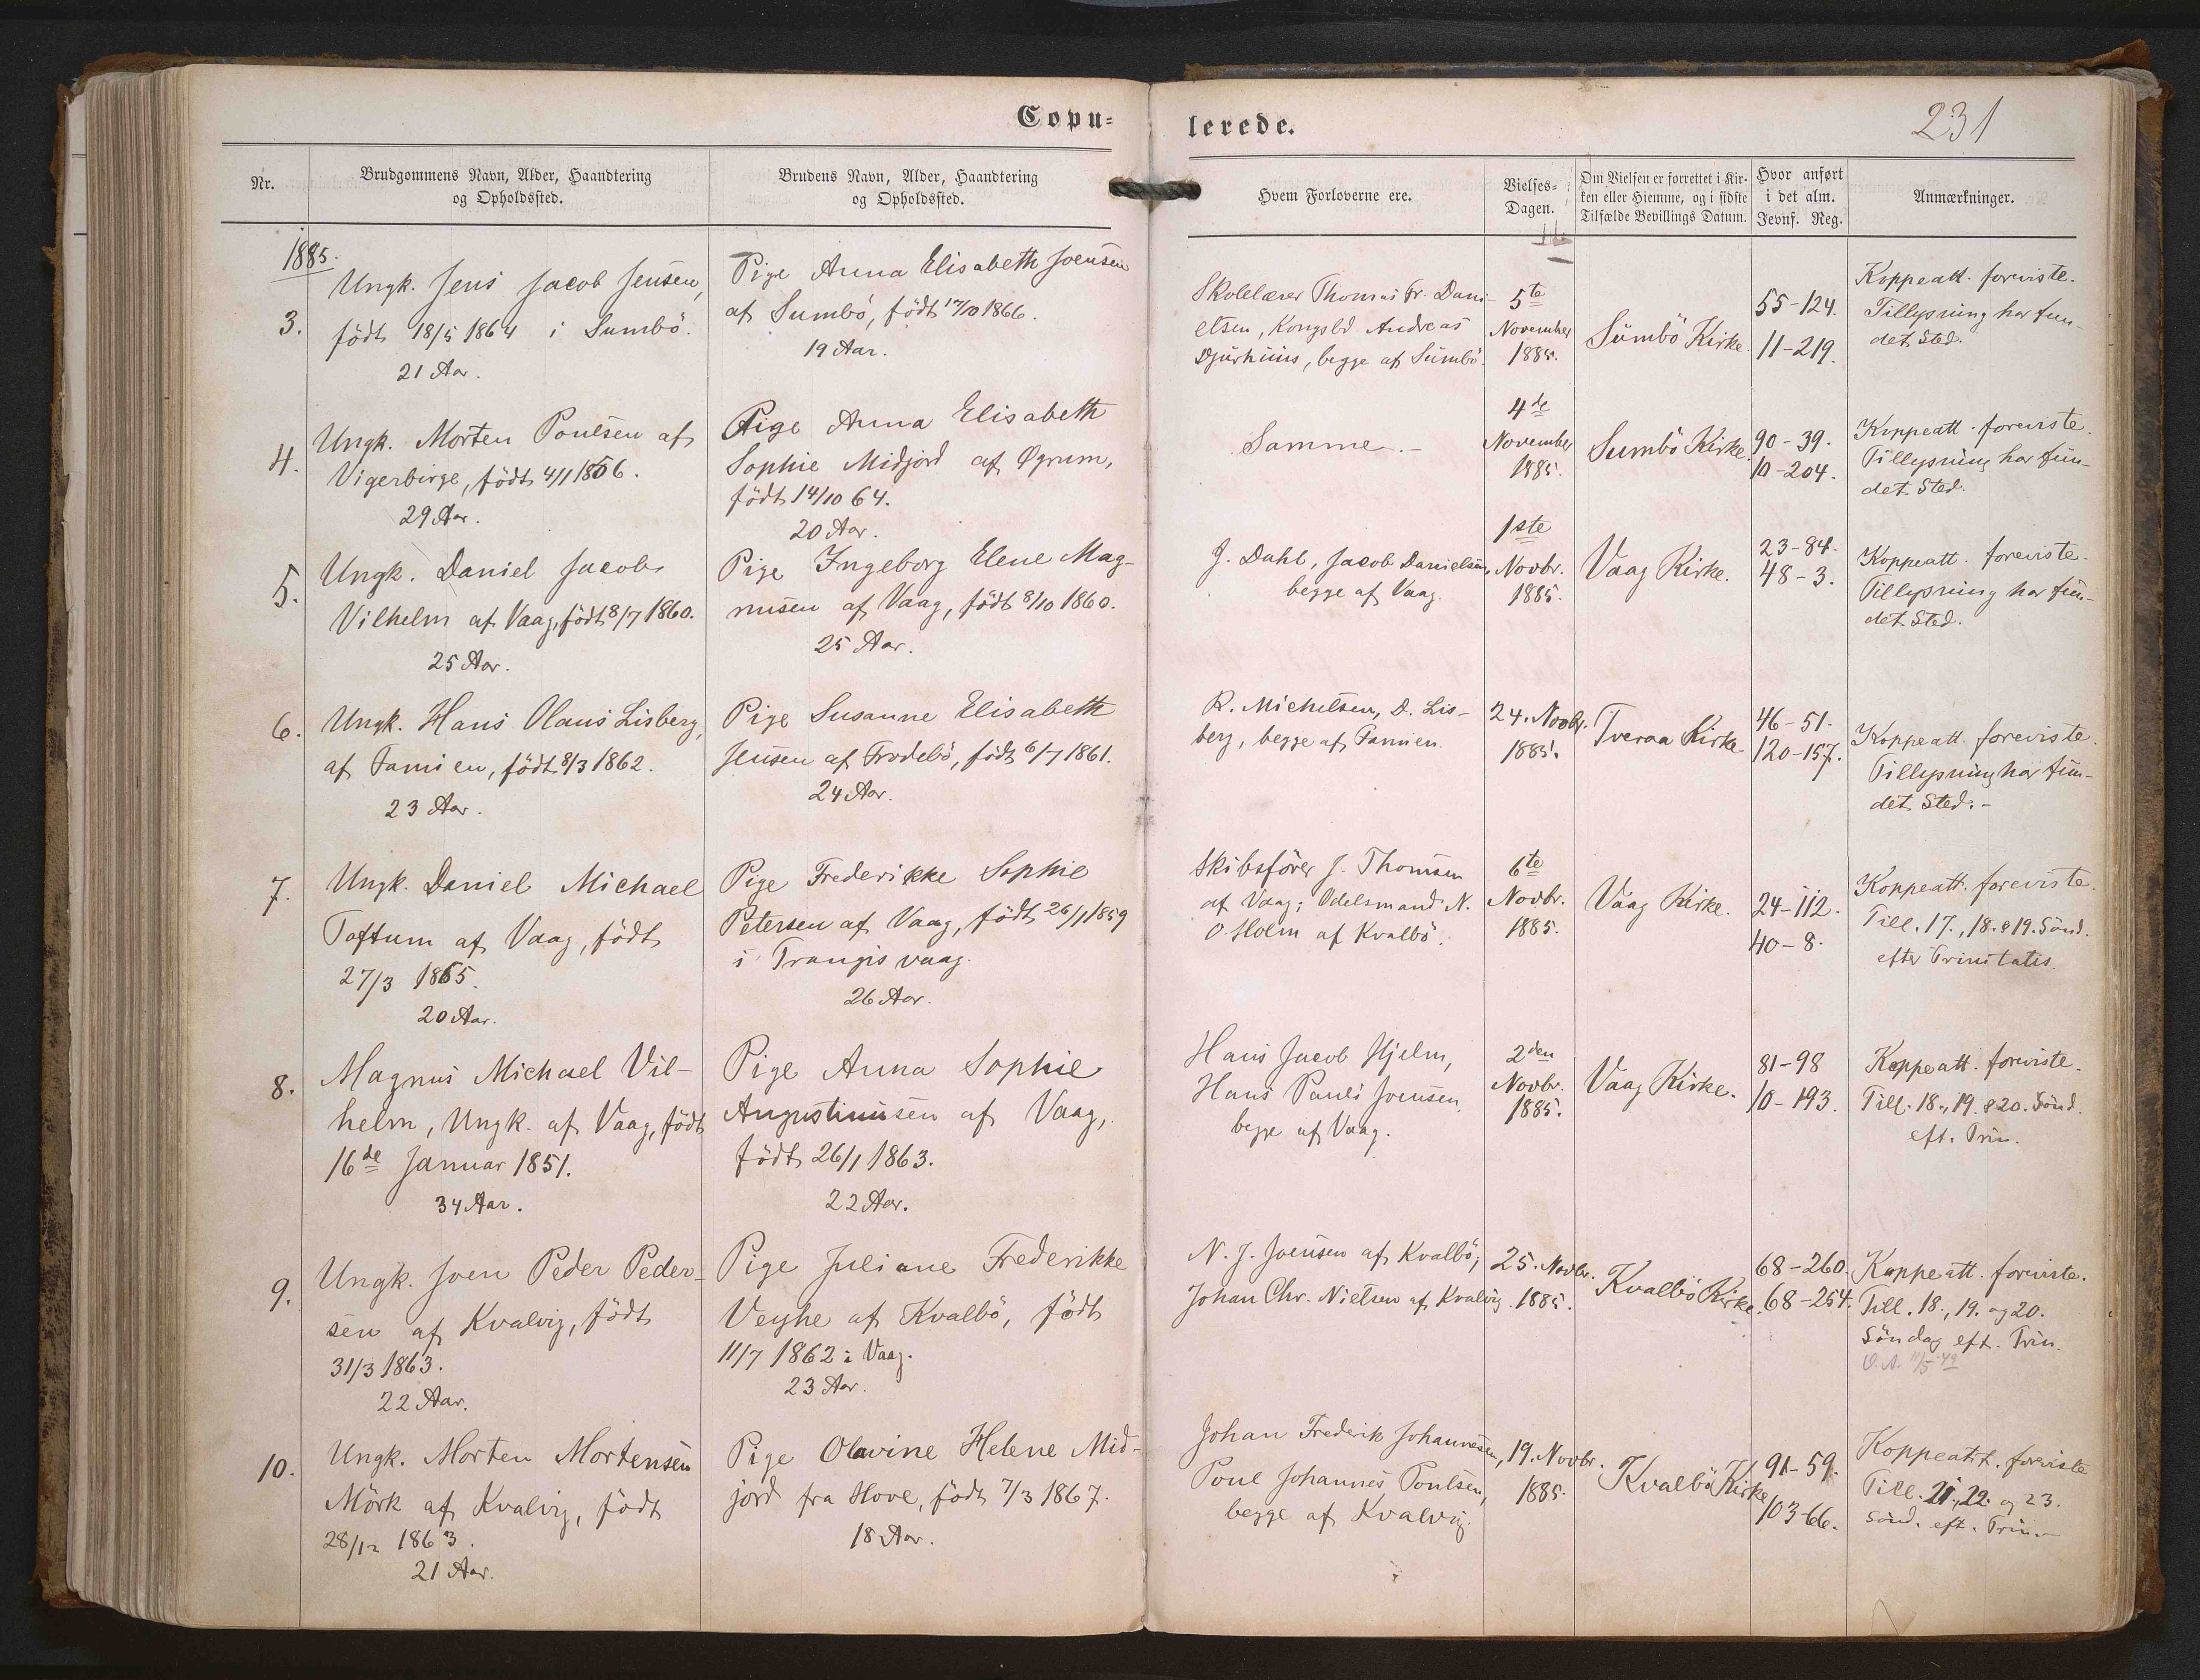 Copu=
lerede.
231
Nr.
Brudgommens Navn, Alder, Haandtering
og Opholdssted.
Brudens Navn, Alder, Haandtering
og Opholdssted.
Hvem Forloverne ere.
Vielses-
Dagen.
Om Vielsen er forrettet i Kir-
ken eller Hiemme, og i sidste
Tilfælde Bevillings Datum.
Hvor anført
i det alm.
Jevnf. Reg.
Anmærkninger.
1885.
3.
Ungk. Jens Jacob Jensen,
födt 18/5 1864 i Sumbö.
21 Aar.
Pige Anna Elisabeth Joensen
af Sumbö, födt 17/10 1866.
19 Aar.
Skolelærer Thomas Fr. Dani-
elsen, Kongsbd Andreas
Djurhuus, begge af Sumbö.
5te
November
1885.
Sumbö Kirke.
55-124.
11-219.
Koppeatt. foreviste.
Tillysning har fun-
det Sted.
4.
Ungk. Morten Poulsen af
Vigerbirge, födt 4/1 1856.
29 Aar.
Pige Anna Elisabeth
Sophie Midjord af Øgrum,
födt 14/10 64.
20 Aar.
Samme.-
4de
November
1885.
Sumbö Kirke.
90-39.
10-204.
Koppeatt. foreviste.
Tillysning har fun-
det Sted.
5.
Ungk. Daniel Jacob
Vilhelm af Vaag, födt 8/7 1860.
25 Aar.
Pige Ingeborg Elene Mag-
nusen af Vaag, födt 8/10 1860.
25 Aar.
J. Dahl, Jacob Danielsen,
begge af Vaag.
1ste
Novbr.
1885.
Vaag Kirke.
23-84.
48-3.
Koppeatt. foreviste.
Tillysning har fun-
det Sted.
6.
Ungk. Hans Olaus Lisberg,
af Famien, födt 8/3 1862.
23 Aar.
Pige Susanne Elisabeth
Jensen af Frodebö, födt 6/7 1861.
24 Aar.
R. Michelsen, D. Lis-
berg, begge af Famien.
24. Novbr.
1885.
Tveraa Kirke
46-51.
120-157.
Koppeatt. foreviste.
Tillysning har fun-
det Sted.-
7.
Ungk. Daniel Michael
Toftum af Vaag, födt
27/3 1865.
20 Aar.
Pige Frederikke Sophie
Petersen af Vaag, födt 26/1 1859
i Trangisvaag.
26 Aar.
Skibsförer J. Thomsen
af Vaag; Odelsmand N.
O. Holm af Kvalbö.
6te
Novbr.
1885.
Vaag Kirke.
24-112.
40-8.
Koppeatt. foreviste.
Till. 17., 18. & 19. Sönd.
efter Trinitatis.
8.
Magnus Michael Vil-
helm, Ungk. af Vaag, födt
16de Januar 1851.
34 Aar.
Pige Anna Sophie
Augustinusen af Vaag,
födt 26/1 1863.
22 Aar.
Hans Jacob Hjelm,
Hans Pauli Joensen,
begge af Vaag.
2den
Novbr.
1885.
Vaag Kirke.
81-98
10-193.
Koppeatt. foreviste.
Till. 18., 19. & 20. Sönd.
eft. Trin.
9.
Ungk. Joen Peder Peder-
sen af Kvalvig, födt
31/3 1863.
22 Aar.
Pige Juliane Frederikke
Veyhe af Kvalbö, födt
11/7 1862 i Vaag.
23 Aar.
N. J. Joensen af Kvalbö;
Johan Chr. Nielsen af Kvalvig.
25. Novbr.
1885.
Kvalbö Kirke.
68-260.
68-254.
Koppeatt. foreviste.
Till. 18., 19. og 20.
Söndag eft. Trin.
V.A. 11/5-49
10.
Ungk. Morten Mortensen
Mörk af Kvalvig, födt
28/12 1863.
21 Aar.
Pige Olavine Helene Mid-
jord fra Hove, födt 7/3 1867.
18 Aar.
Johan Frederik Johannesen,
Poul Johannes Poulsen,
begge af Kvalvig.
19. Novbr.
1885.
Kvalbö Kirke
91-59.
103-66.
Koppeatt. foreviste
Till. 21., 22. og 23.
Sönd. eft. Trin.-